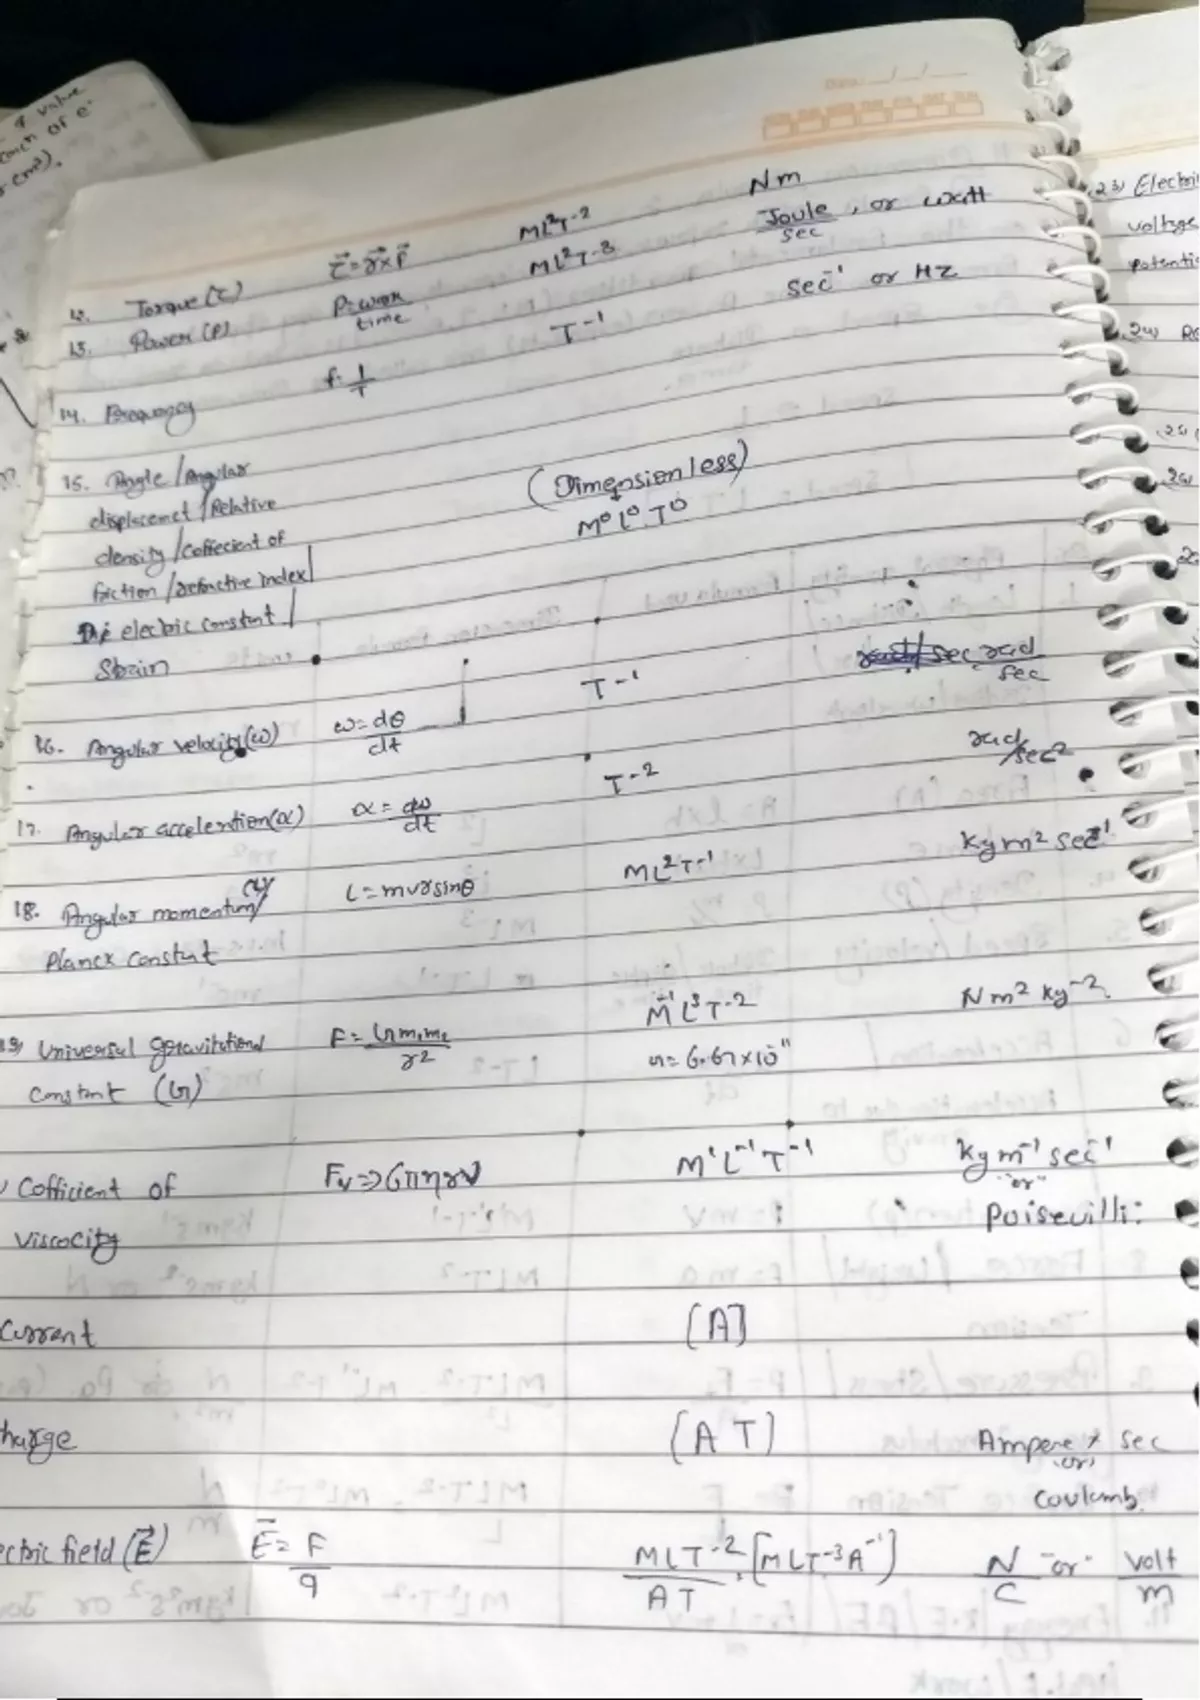 q value
each of e
cm²).
Date: __/__/__
12. Torque (τ) τ⃗ = r⃗×F⃗ ML²T-2 Nm
13. Power (P) P=work/time ML²T-3 Joule/sec, or watt
14. Frequency f=1/T T-1 sec-1 or HZ
15. Angle /Angular
displacemet /Relative
density /Coffecient of
friction /refractive index/
Di electric constent /
Strain
(Dimensionless)
M⁰L⁰T⁰
16. Angular velocity(ω) ω=dθ/dt T-1 rad/sec
17. Angular accelertion(α) α=dω/dt T-2 rad/sec²
18. Angular momentum(L)/ L=mvrsinθ ML²T-1 kgm² sec-1
Planck Constnt
19) Universal gravitational F=Gm₁m₂/r² M-1L³T-2 Nm² kg-2
Constnt (G) G=6.67×10-11
) Cofficient of Fv=>6πηrv M¹L-1T-1 kgm-1 sec-1
"or"
Viscocity Poisevilli:
Current [A]
harge [AT] Ampere × sec
(or)
Coulomb.
ectric field (E⃗) E⃗=F/q MLT-2/AT . [MLT-3A-1] N/C "or" volt/m
23) Electri
voltage
potentia
24) Re
25)
26)